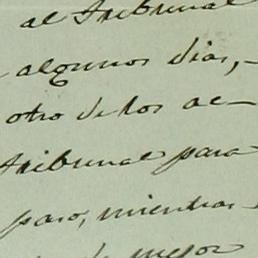 al Tribunal
algunos dias,-
otro de los ac-
tribunal para
paso, mientras
mejor